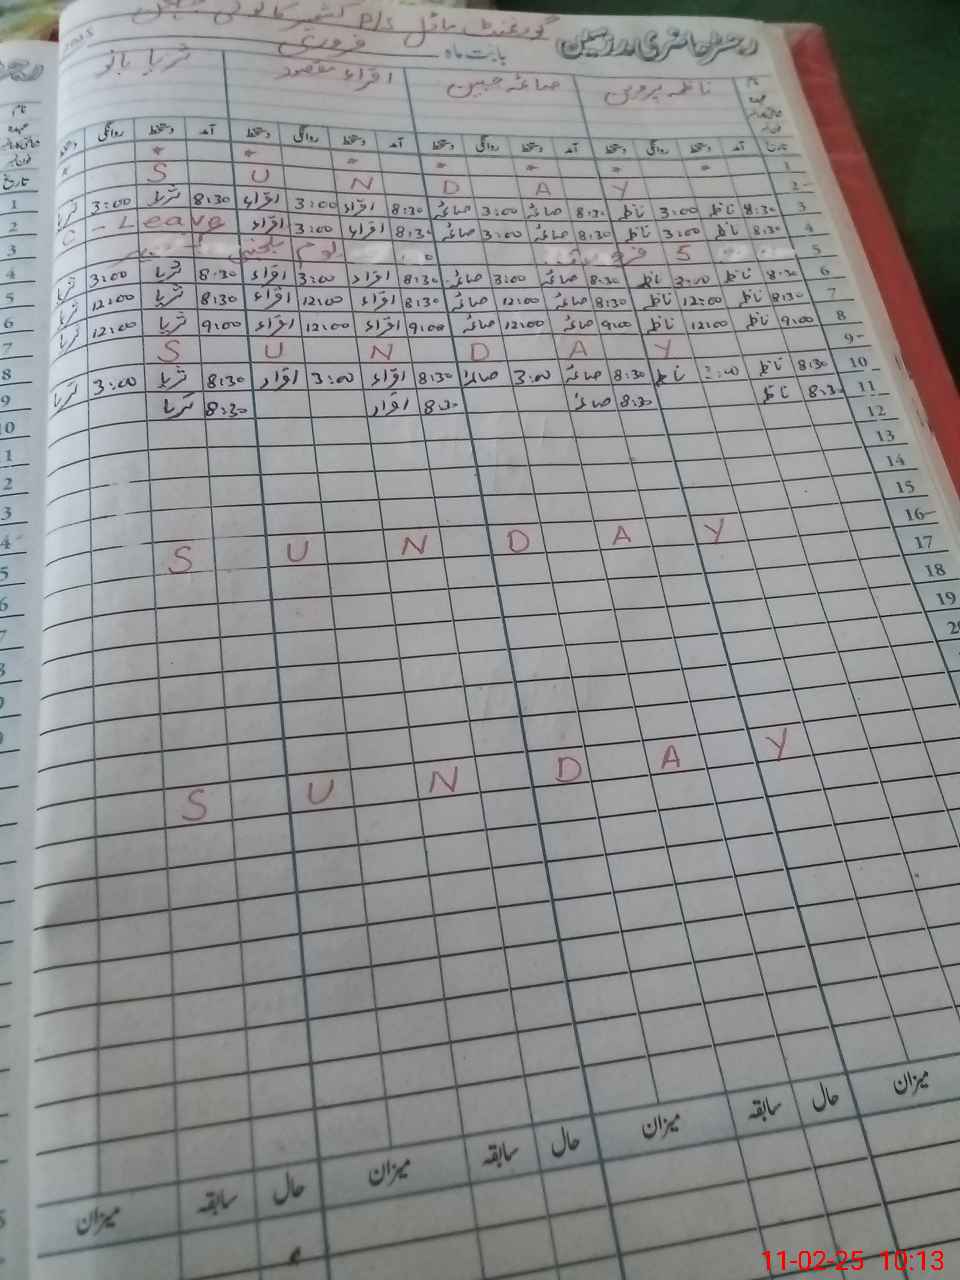 رجسٹر حاضری مدرسین گورنمنٹ ماڈل P/S کشمیر کالونی
بابت ماہ فروری 2025
نام ناظمہ پروین صائمہ جبین اقراء مقصود ثریا بانو
عہدہ
تاریخ آمد دستخط روانگی دستخط آمد دستخط روانگی دستخط آمد دستخط روانگی دستخط آمد دستخط روانگی دستخط
1
2 S U N D A Y
3 8:30 ناظمہ 3:00 ناظمہ 8:30 صائمہ 3:00 صائمہ 8:30 اقراء 3:00 اقراء 8:30 ثریا 3:00 ثریا
4 8:30 ناظمہ 3:00 ناظمہ 8:30 صائمہ 3:00 صائمہ 8:30 اقراء 3:00 اقراء C - Leave
5 5 فروری یوم
6 8:30 ناظمہ 3:00 ناظمہ 8:30 صائمہ 3:00 صائمہ 8:30 اقراء 3:00 اقراء 8:30 ثریا 3:00 ثریا
7 8:30 ناظمہ 12:00 ناظمہ 8:30 صائمہ 12:00 صائمہ 8:30 اقراء 12:00 اقراء 8:30 ثریا 12:00 ثریا
8 9:00 ناظمہ 12:00 ناظمہ 9:00 صائمہ 12:00 صائمہ 9:00 اقراء 12:00 اقراء 9:00 ثریا 12:00 ثریا
9 S U N D A Y
10 8:30 ناظمہ 3:00 ناظمہ 8:30 صائمہ 3:00 صائمہ 8:30 اقراء 3:00 اقراء 8:30 ثریا 3:00 ثریا
11 8:30 ناظمہ 8:30 صائمہ 8:30 اقراء 8:30 ثریا
12
13
14
15
16 S U N D A Y
17
18
19
20
S U N D A Y
میزان حال سابقہ میزان حال سابقہ میزان حال سابقہ میزان
11-02-25 10:13